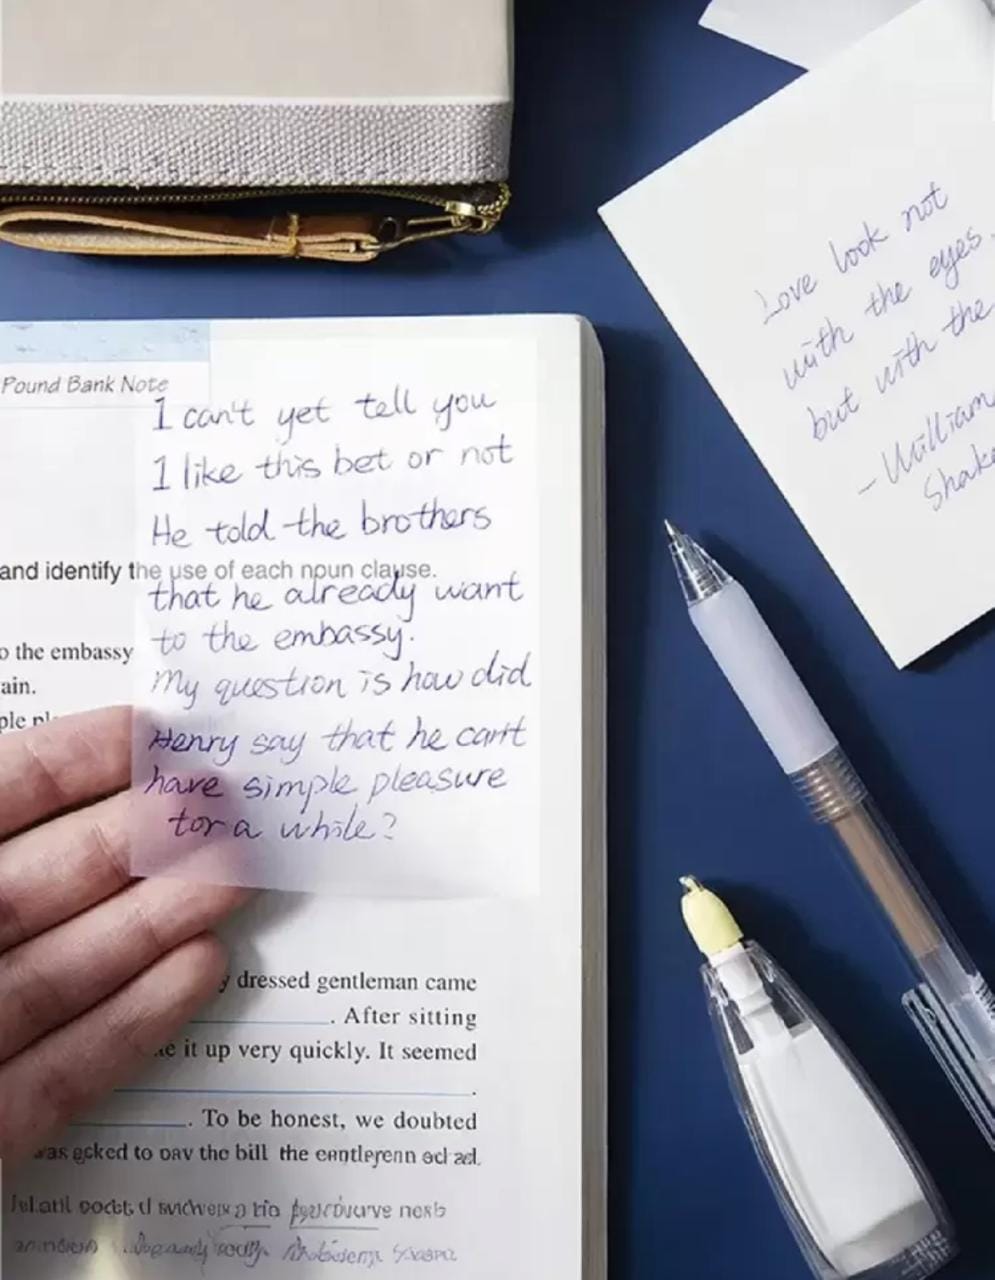 Pound Bank Note
I can't yet tell you
I like this bet or not
He told the brothers
and identify the use of each noun clause.
that he already want
to the embassy.
o the embassy
My question is how did
ain.
ple pl
Henry say that he can't
have simple pleasure
tor a while?
y dressed gentleman came
. After sitting
e it up very quickly. It seemed
.
. To be honest, we doubted
to the bill the
Love look not
with the eyes.
but with the
-William
Shake